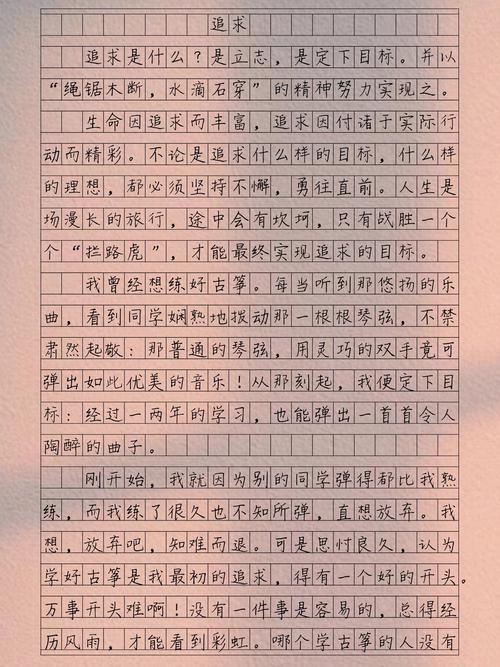 追求
追求是什么?是立志,是定下目标。并以
“绳锯木断,水滴石穿”的精神努力实现之。
生命因追求而丰富,追求因付诸于实际行
动而精彩。不论是追求什么样的目标,什么样
的理想,都必须坚持不懈,勇往直前。人生是
场漫长的旅行,途中会有坎坷,只有战胜一个
个“拦路虎”,才能最终实现追求的目标。
我曾经想练好古筝。每当听到那悠扬的乐
曲,看到同学娴熟地拨动那一根根琴弦,不禁
肃然起敬:那普通的琴弦,用灵巧的双手竟可
弹出如此优美的音乐!从那刻起,我便定下目
标:经过一两年的学习,也能弹出一首首令人
陶醉的曲子。
刚开始,我就因为别的同学弹得都比我熟
练,而我练了很久也不知所弹,直想放弃。我
想,放弃吧,知难而退。可是思忖良久,认为
学好古筝是我最初的追求,得有一个好的开头。
万事开头难啊!没有一件事是容易的,总得经
历风雨,才能看到彩虹。哪个学古筝的人没有